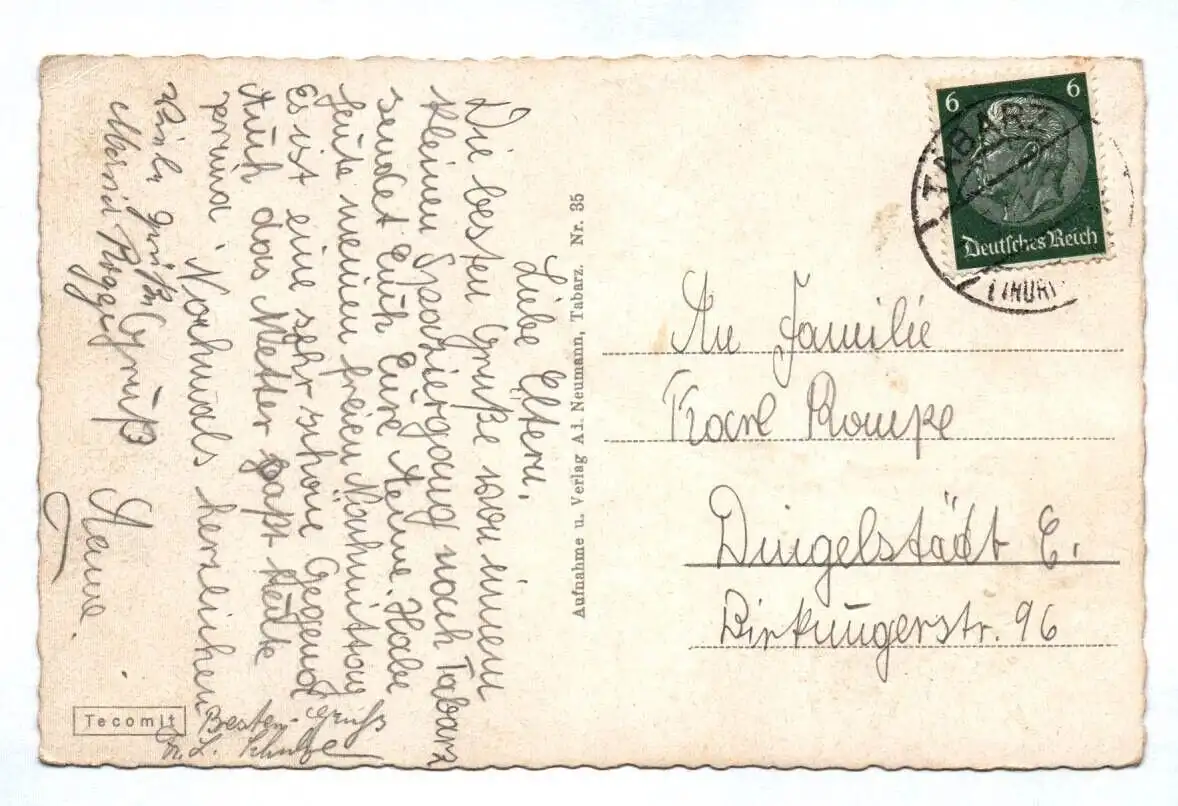 Liebe Eltern,
Die besten Grüße von einem
kleinen Spaziergang nach Tabarz
sendet Euch Eure Aenne. Habe
heute meinen freien Nachmittag
Es ist eine sehr schöne Gegend
Auch das Wetter
prima. Nochmals herzlichen
Gruß Aenne.
Viele Grüße
Besten Gruß
Aufnahme u. Verlag Ad. Neumann, Tabarz. Nr. 35
Tecomit
6 6
Deutsches Reich
TABARZ
(THÜR)
An Familie
Karl
Dingelstädt E.
Birkungerstr. 96